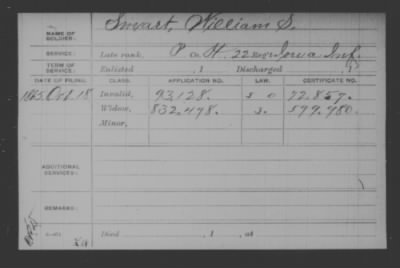 NAME OF SOLDIER: Swart, William S.
SERVICE: Late rank, P Co. H. 22 Reg't Iowa Inf.
TERM OF SERVICE: Enlisted , 1 Discharged , 1
DATE OF FILING. CLASS. APPLICATION NO. LAW. CERTIFICATE NO.
1865, Oct. 18 Invalid, 93,128. 72,857.
Widow, 832,478. 579,980.
Minor,
ADDITIONAL SERVICES:
REMARKS:
Died , 1 , at